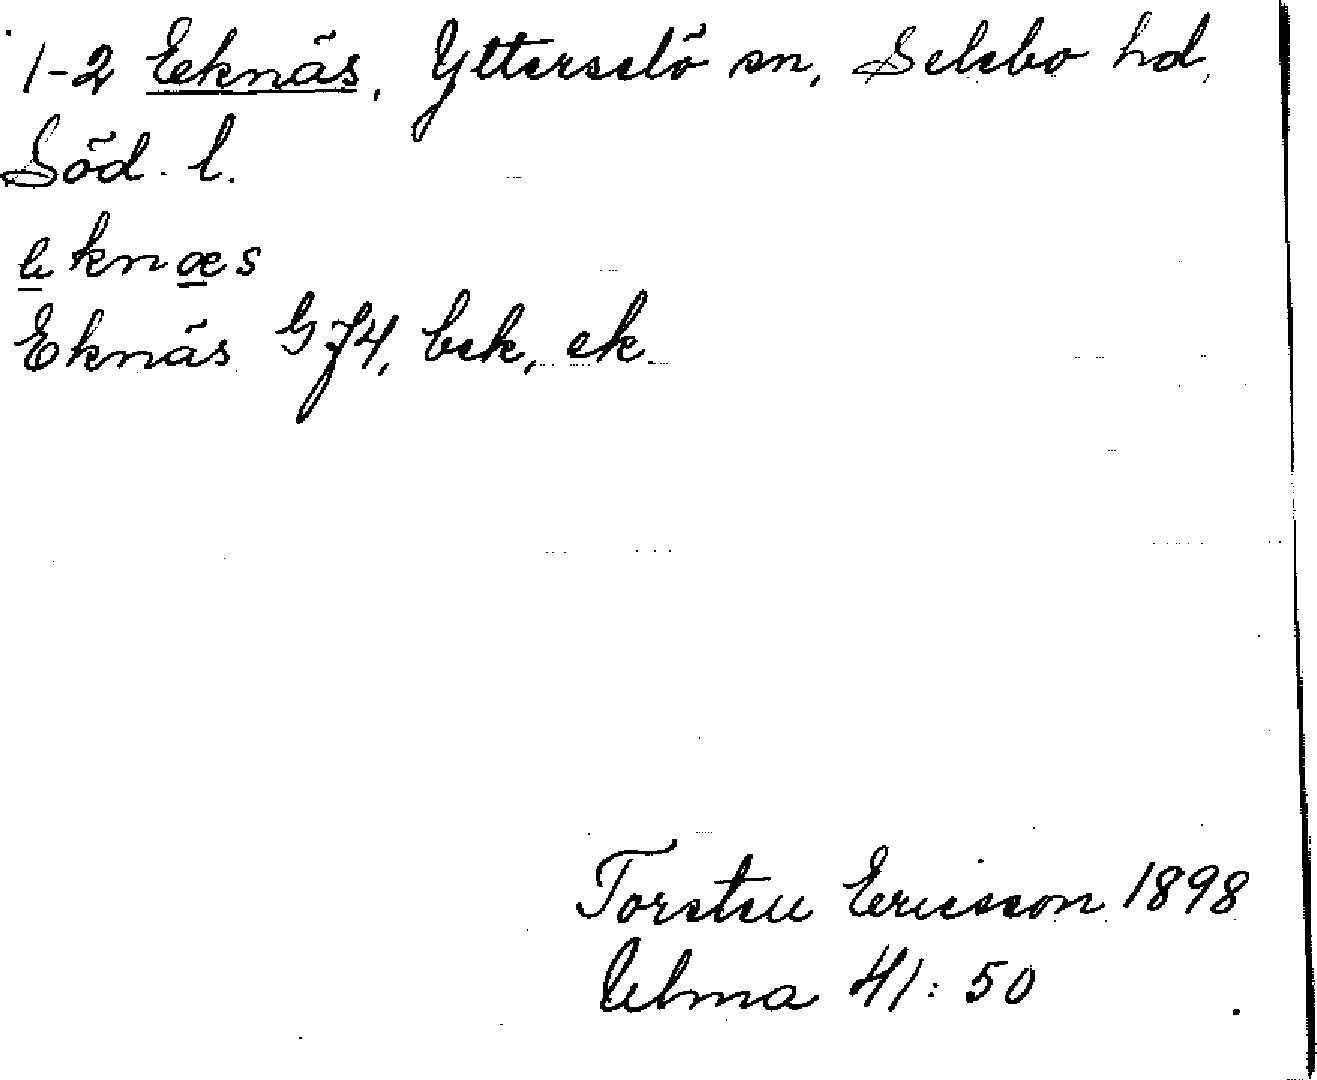 1-2 Eknäs, Ytterselö sn, Selebo hd,
Söd. l.
eknæs
Eknäs GJ4, bek, ek.
Torsten Ericsson 1898
Ulma 41:50